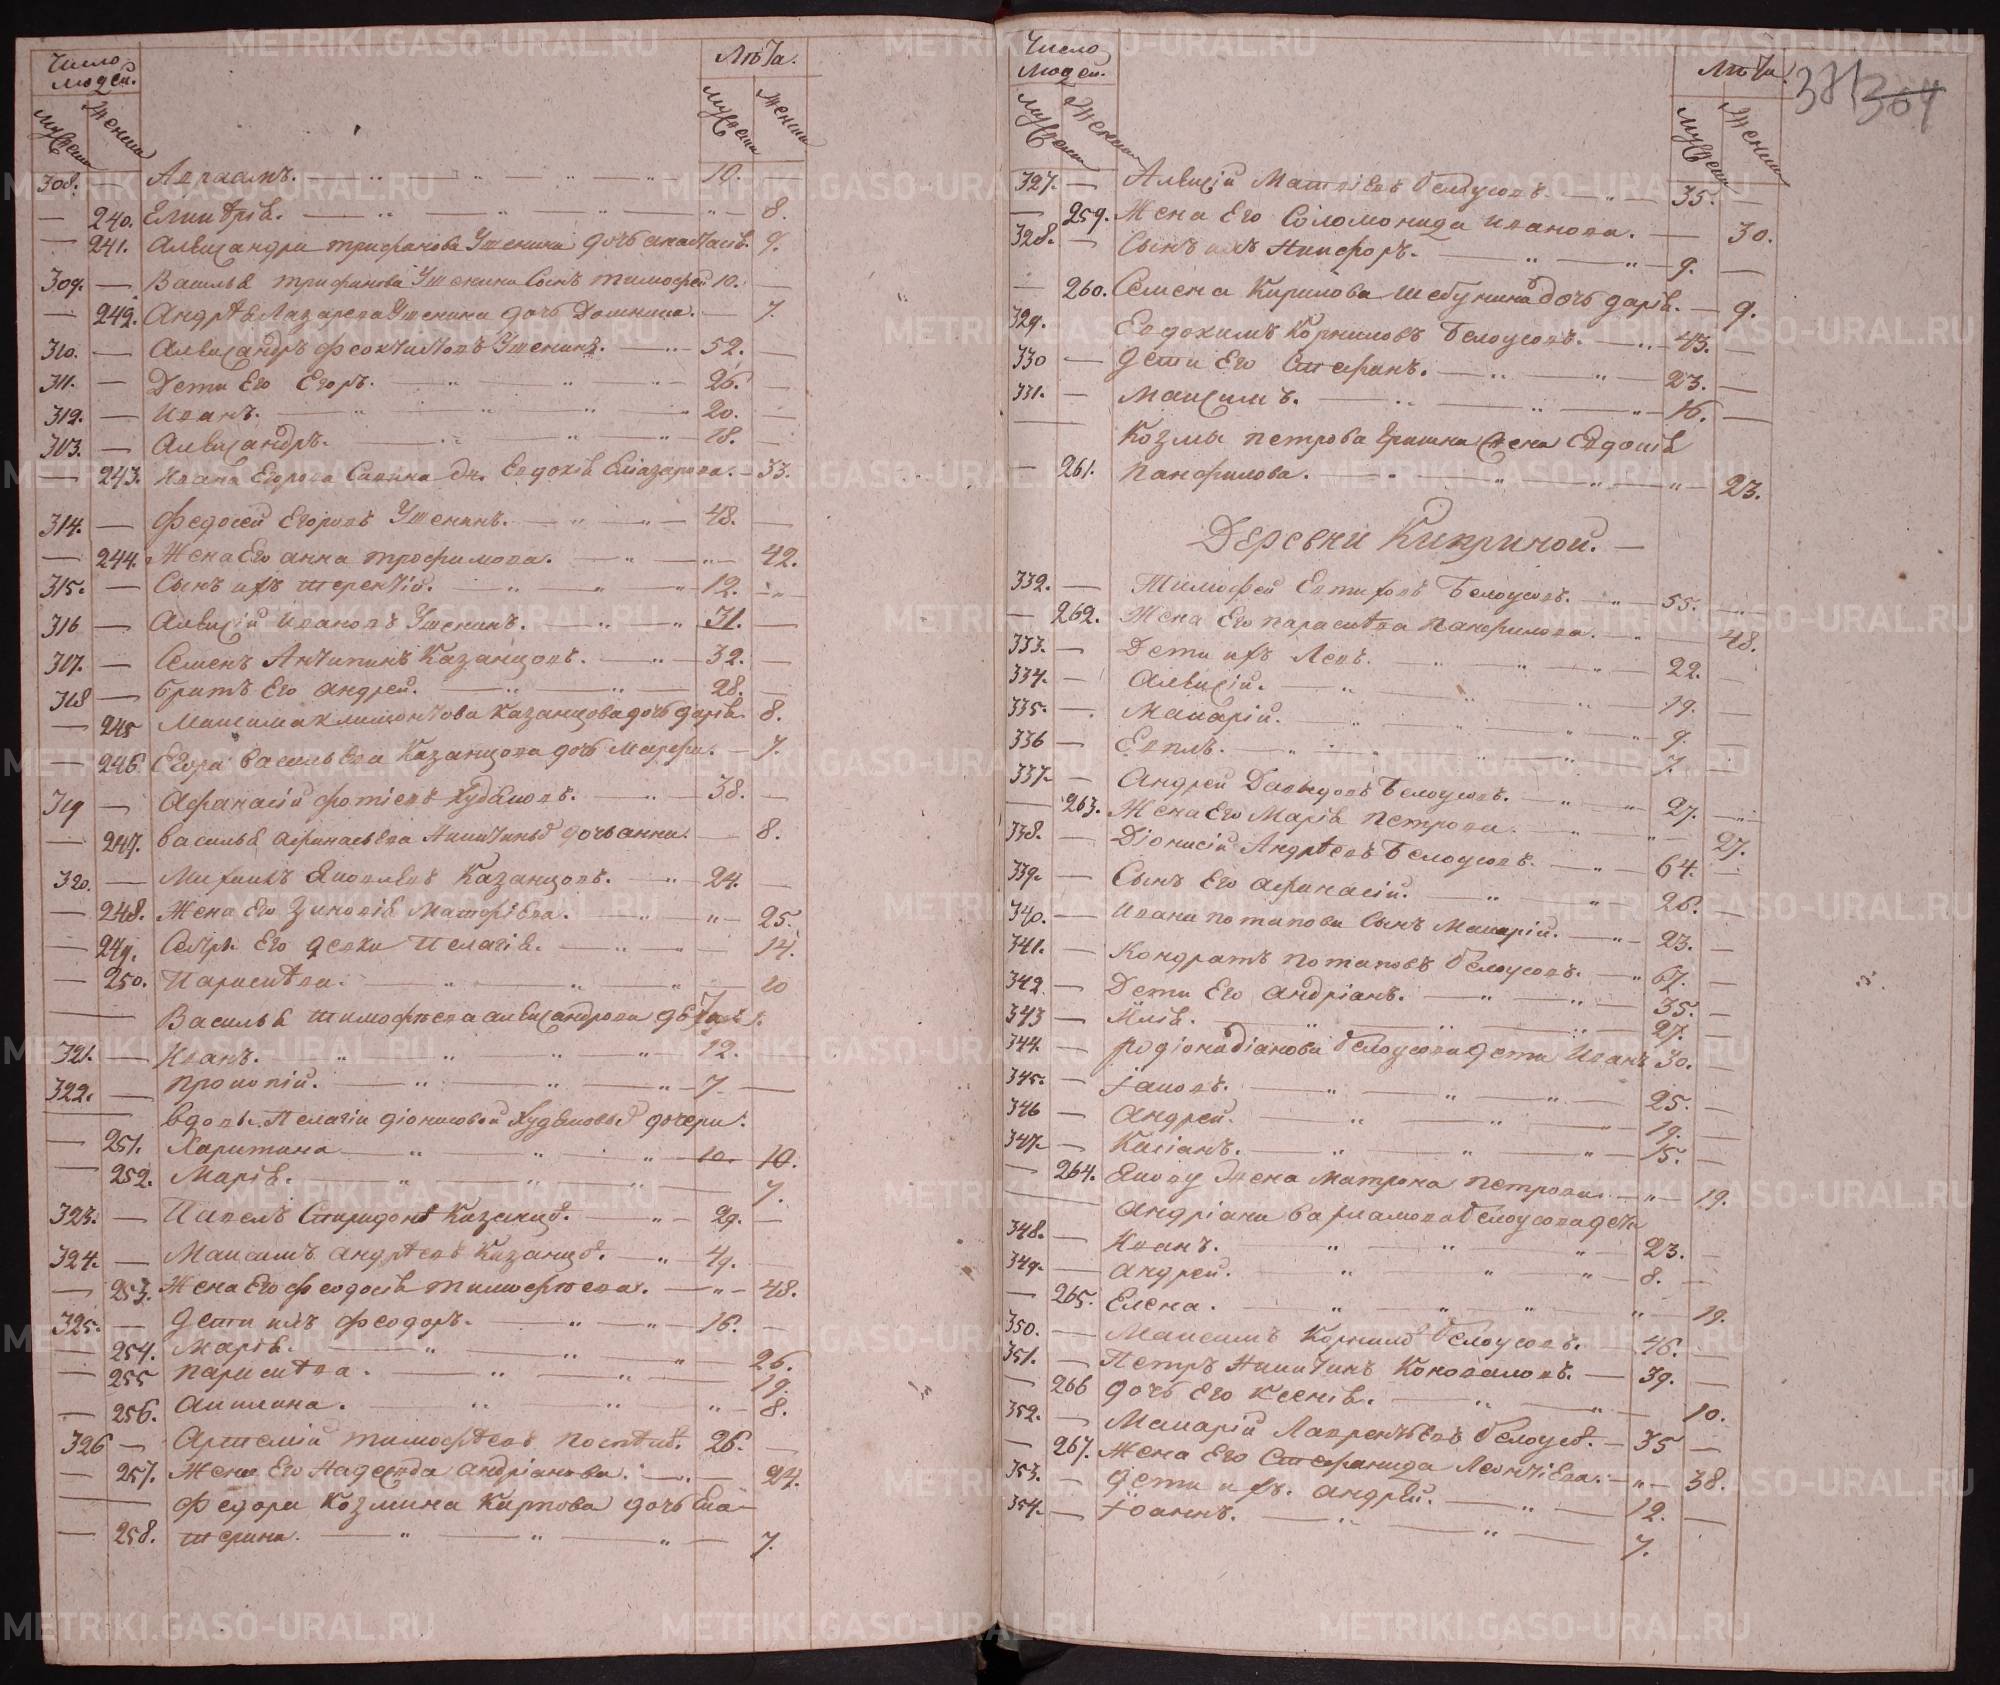 Число людей. Лѣта.
мужеска женска мужеска женска
308. — Авраамъ. — 10. —
— 240. Елпидифоріа. — 8.
— 241. Александра Трифанова Утенина дочь Анастасія. 9.
309. — Василья Трифанова Утенина Сынъ Тимофей 10. —
— 242. Андрѣя Лазарева Утенина дочь Домника. — 7.
310. — Александръ Феоктистовъ Утенинъ. — 52. —
311. — Дети Его Егоръ. — 26. —
312. — Иванъ. — 20. —
313. — Александръ. — 18. —
— 243. Ивана Егорова Савина Евдокія Елиазарова. — 33.
314. — Федосей Егоровъ Утенинъ. — 48. —
— 244. Жена Его Анна Трофимова. — 42.
315. — Сынъ ихъ Терентій. — 12. —
316 — Алексій Ивановъ Утенинъ. — 31. —
317. — Семенъ Антипинъ Казанцовъ. — 32. —
318 — братъ Его Андрей. — 28. —
— 245 Максима Клементова Казанцова дочь Дарія. 8.
— 246. Егора Васильева Казанцова дочь Марфа. — 7.
319 — Афанасій Фотіевъ Худяковъ. — 38. —
— 247. Василья Афанасьева Никитиныхъ дочь Анна. — 8.
320. — Михаилъ Яковлевъ Казанцовъ. — 24. —
— 248. Жена Его Зиновія Матфіева. — 25.
— 249. Сестры Его девки Пелагія. — 14.
— 250. Параскѣва. — 10
Василья Тимофѣева Александрова дѣти.
321. — Иванъ. — 12. —
322. — Прокопій. — 7 —
вдовы Пелагіи Діонисовой Худяковой дочери.
— 251. Харитина — 10. — 10.
— 252. Марія. — 7.
323. — Павелъ Спиридоновъ Казанцовъ. — 29. —
324. — Максимъ Андрѣевъ Казанцовъ. — 49. —
— 253. Жена Его Феодосія Тимофѣева. — 48.
325. — Дети ихъ Феодоръ. — 16. —
— 254. Марія. — 26.
— 255 Параскѣва. — 19.
— 256. Акилина. — 8.
326 — Артемій Тимофѣевъ — 26. —
— 257. Жена Его Надежда Андріанова. — 24.
Федора Козмина Карпова дочь Ека-
— 258. терина. — 7.
381 304
Число людей. Лѣта.
мужеска женска мужеска женска
327. — Алексій Матвіевъ Белоусовъ. — 35. —
— 259. Жена Его Соломонида Иванова. — 30.
328. — Сынъ ихъ Никифоръ. — 9. —
— 260. Семена Кирилова Шебунина дочь Дарія. — 9.
329. — Евдокимъ Корниловъ Белоусовъ. — 43. —
330 — Дети Его Стефанъ. — 23. —
331. — Максимъ. — 16. —
Козмы Петрова Гришина жена Евдокія
— 261. Панфилова. — 23.
Деревни Кикриной. —
332. — Тимофей Евтиховъ Белоусовъ. — 55. —
— 262. Жена Его Параскѣва Панфилова. — 48.
333. — Дети ихъ Левъ. — 22. —
334. — Алексій. — 19. —
335. — Макарій. — 9. —
336 — Евплъ. — 7. —
337. — Андрей Давидовъ Белоусовъ. — 27. —
— 263. Жена Его Марія Петрова. — 27.
338. — Діонисій Андрѣевъ Белоусовъ. — 64. —
339. — Сынъ Его Афанасій. — 26. —
340. — Ивана Потапова Сынъ Макарій. — 23. —
341. — Кондратъ Потаповъ Белоусовъ. — 67. —
342 — Дети Его Андріанъ. — 35. —
343 — Илія. — 27. —
344. — Родіона Діанова Белоусова дети Иванъ 30. —
345. — Іаковъ. — 25. —
346 — Андрей. — 19. —
347. — Касіанъ. — 15. —
— 264. Якову жена Матрона Петрова. — 19.
Андріана Варламова Белоусова дети
348. — Иванъ. — 23. —
349. — Андрей. — 8. —
— 265. Елена. — 19.
350. — Максимъ Корниловъ Белоусовъ. — 46. —
351. — Петръ Никитинъ Коноваловъ. — 39. —
— 266 дочь Его Ксенія. — 10.
352. — Макарій Лаврентьевъ Белоусовъ. — 35 —
— 267. Жена Его Стефанида Леонтіева. — 38.
353. — Дети ихъ Андрей. — 12. —
354. — Іоаннъ. — 7.